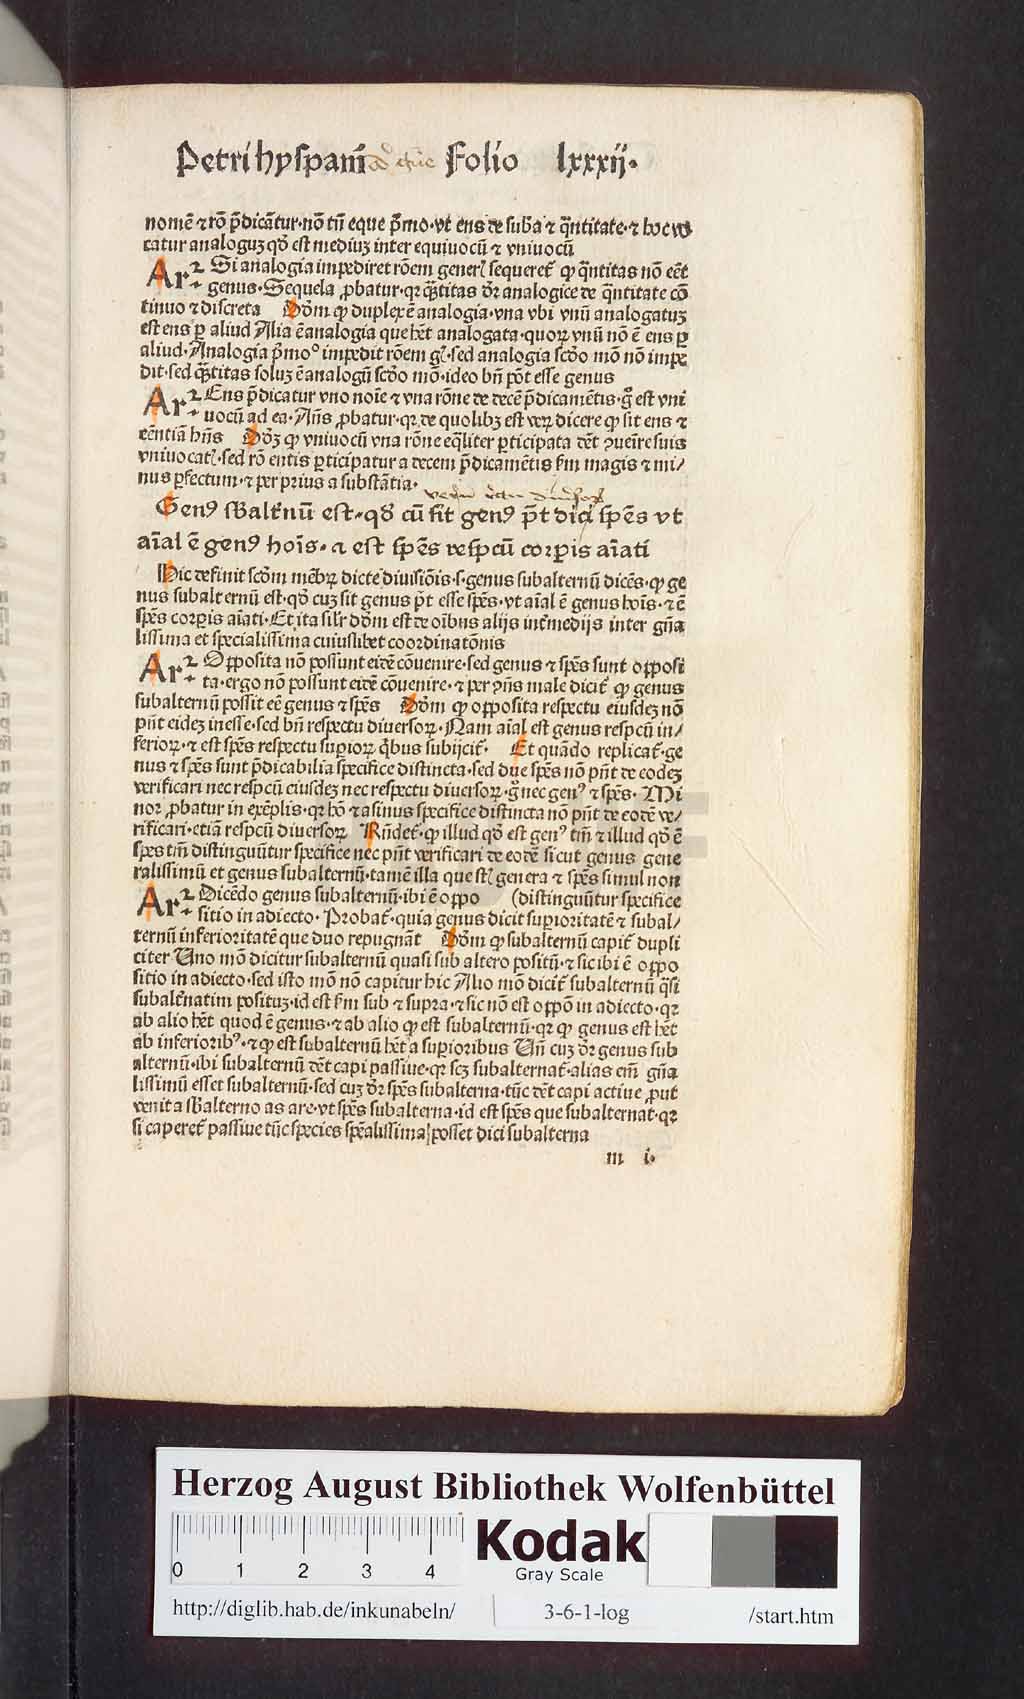 Petri hyspani Folio lxxxij.
nomē ⁊ rō p̄dicāt̄ur·nō tn̄ eque p̄mo·vt ens de sub̄a ⁊ q̄ntitate·⁊ hoc vo
catur analoguꝫ qd̄ est mediuꝫ inter equiuocū ⁊ vniuocū
Arꝛ Si analogia impediret rōem gener̄l sequeret̄ ꝙ q̄ntitas nō eēt
genus·Sequela ꝓbatur·qꝛ q̄ntitas dr̄ analogice de q̄ntitate cō
tinuo ⁊ discreta Dōm ꝙ duplex ē analogia·vna vbi vnū analogatuꝫ
est ens ꝑ aliud Alia ē analogia que hēt analogata·quoꝝ vnū nō ē ens ꝑ
aliud·Analogia p̄mo° impedit rōem gn̄·sed analogia scd̄o mō nō impe
dit·sed q̄ntitas soluꝫ ē analogū scd̄o mō·ideo bn̄ pōt esse genus
Arꝛ Ens p̄dicatur vno noīe ⁊ vna rōne de decē p̄dicamētis·g° est vni
uocū ad ea·An̄s ꝓbatur·qꝛ de quolibꝫ est veꝝ dicere ꝙ sit ens ⁊
entiā hn̄s Dōꝫ ꝙ vniuocū vna rōne eq̄liter ꝑticipata dēt ꝯuenire suis
vniuocat̄·sed rō entis ꝑticipatur a decem p̄dicamētis s̄m magis ⁊ mi/
nus ꝑfectum·⁊ per prius a substātia·
Genꝰ s̄balt̄nū est·qd̄ cū sit genꝰ p̄t dici sp̄es vt
aīal ē genꝰ hoīs·⁊ est sp̄es respcū corꝑis aīati
Hic definit scd̄m mēbꝝ dicte diuisiōis·s·genus subalternū dicēs·ꝙ ge
nus subalternū est·qd̄ cuꝫ sit genus p̄t esse sp̄es·vt aīal ē genus hoīs·⁊ ē
sp̄es corꝑis aīati·Et ita sil'r dōm est de oībus alijs int̄medijs inter gn̄a
lissima et specialissima cuiuslibet coordinatōnis
Arꝛ Opposita nō possunt eidē cōuenire·sed genus ⁊ sp̄es sunt opposi
ta·ergo nō possunt eidē cōuenire·⁊ per ꝯn̄s male dicit̄ ꝙ genus
subalternū possit eē genus ⁊ sp̄es Dōm ꝙ opposita respectu eiusdeꝫ nō
pn̄t eideꝫ inesse·sed bn̄ respectu diuersoꝝ·Nam aīal est genus respcū in/
ferioꝝ·⁊ est sp̄es respectu suꝑioꝝ q̄bus subijcit̄· Et quādo replicat̄·ge
nus ⁊ sp̄es sunt p̄dicabilia specifice distincta·sed due sp̄es nō pn̄t de eodeꝫ
verificari nec respcū eiusdeꝫ nec respectu diuersoꝝ·gͦ nec genꝰ ⁊ sp̄es· Mi
nor ꝓbatur in exēplis·qꝛ hō ⁊ asinus specifice distincta nō pn̄t de eodē ve/
rificari·etiā respcū diuersoꝝ Rn̄det̄·ꝙ illud qd̄ est genꝰ tm̄ ⁊ illud qd̄ ē
sp̄es tm̄ distinguūtur specifice nec pn̄t verificari de eodē sicut genus gene
ralissimū et genus subalternū·tamē illa que sūt genera ⁊ sp̄es simul non
Arꝛ Dicēdo genus subalternū·ibi ē oppo (distinguūtur specifice
sitio in adiecto·Probat̄·quia genus dicit suꝑioritatē ⁊ subal/
ternū inferioritatē que duo repugnāt Dōm ꝙ subalternū capit̄ dupli
citer Uno mō dicitur subalternū quasi sub altero positū·⁊ sic ibi ē oppo
sitio in adiecto·sed isto mō nō capitur hic Alio mō dicit̄ subalternū q̄si
subalt̄natim posituꝫ·id est s̄m sub ⁊ supra·⁊ sic nō est oppō in adiecto·qꝛ
ab alio hēt quod ē genus·⁊ ab alio ꝙ est subalternū·qꝛ ꝙ genus est hēt
ab inferioribꝰ·⁊ ꝙ est subalternū hēt a suꝑioribus Un̄ cuꝫ dr̄ genus sub
alternū·ibi subalternū dēt capi passiue·qꝛ scꝫ subalternat̄·alias em̄ gn̄a
lissimū esset subalternū·sed cuꝫ dr̄ sp̄es subalterna·tūc dēt capi actiue ꝓut
venit a s̄balterno as are·vt sp̄es subalterna·id est sp̄es que subalternat·qꝛ
si caperet̄ passiue tūc species sp̄ealissima posset dici subalterna
m i·
Herzog August Bibliothek Wolfenbüttel
0 1 2 3 4
Kodak
Gray Scale
http://diglib.hab.de/inkunabeln/ 3-6-1-log /start.htm